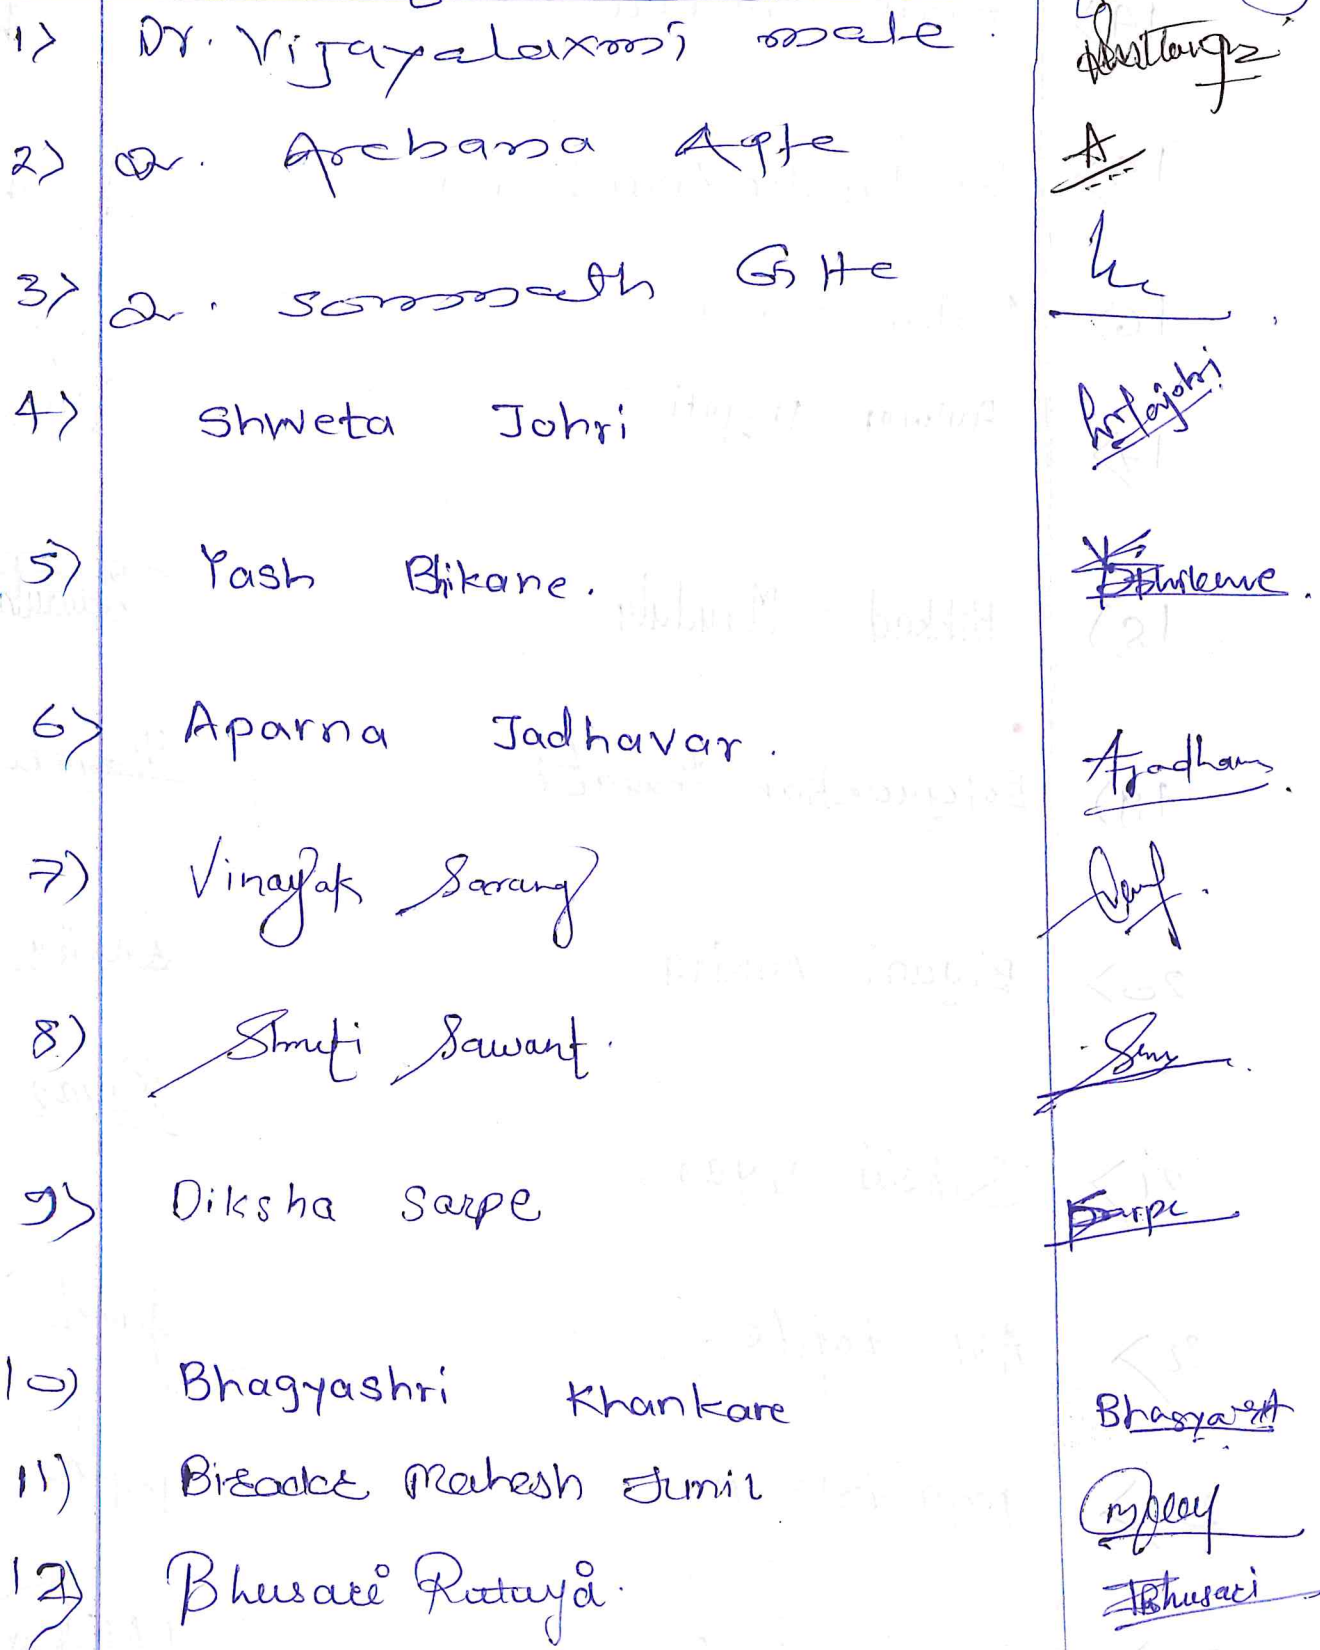 1) Dr. Vijayalaxmi male.
2) Dr. Archana Agte A
3) Dr. Somnath Gitte
4) Shweta Johri
5) Yash Bhikane. Bhikane.
6) Aparna Jadhavar. Ajadhav
7) Vinayak Sarang
8) Shruti Sawant.
9) Diksha Sarpe Sarpe
10) Bhagyashri Khankare Bhagyashri
11) Mahesh Sunil
12) Bhusari Rutuja. Bhusari